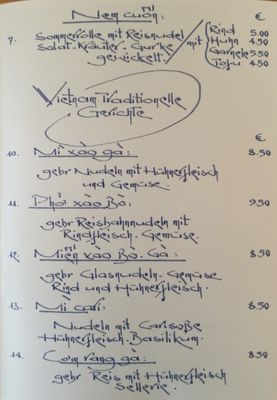 Nem cuốn: €
7. Sommerrolle mit Reisnudel Rind 5.00
Salat-Kräuter-Gurke mit Huhn 4.50
gewickelt. Garnele 5.50
Tofu 4.50
Vietnam Traditionelle
Gerichte
€
10. Mì xào gà: 8.50
gebr Nudeln mit Hühnerfleisch
und Gemüse.
11. Phở xào Bò: 9.50
gebr Reisbannudeln mit
Rindfleisch. Gemüse.
12. Miến xào Bò. Gà: 8.50
gebr Glasnudeln. Gemüse
Rind und Hühnerfleisch.
13. Mì cari: 8.50
Nudeln mit Carisoße
Hühnerfleisch. Basilikum.
14. Cơm rang gà: 8.50
gebr Reis mit Hühnerfleisch
Sellerie.